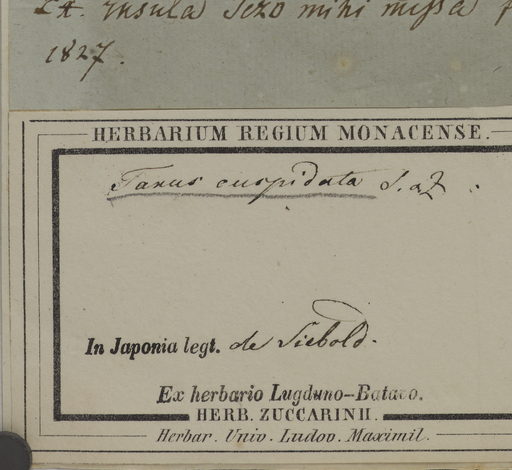 Ex. Insula Jezo mihi missa
1827.
HERBARIUM REGIUM MONACENSE.
Taxus cuspidata S. a Z.
In Japonia legt. de Siebold.
Ex herbario Lugduno-Batavo.
HERB. ZUCCARINII.
Herbar. Univ. Ludov. Maximil.